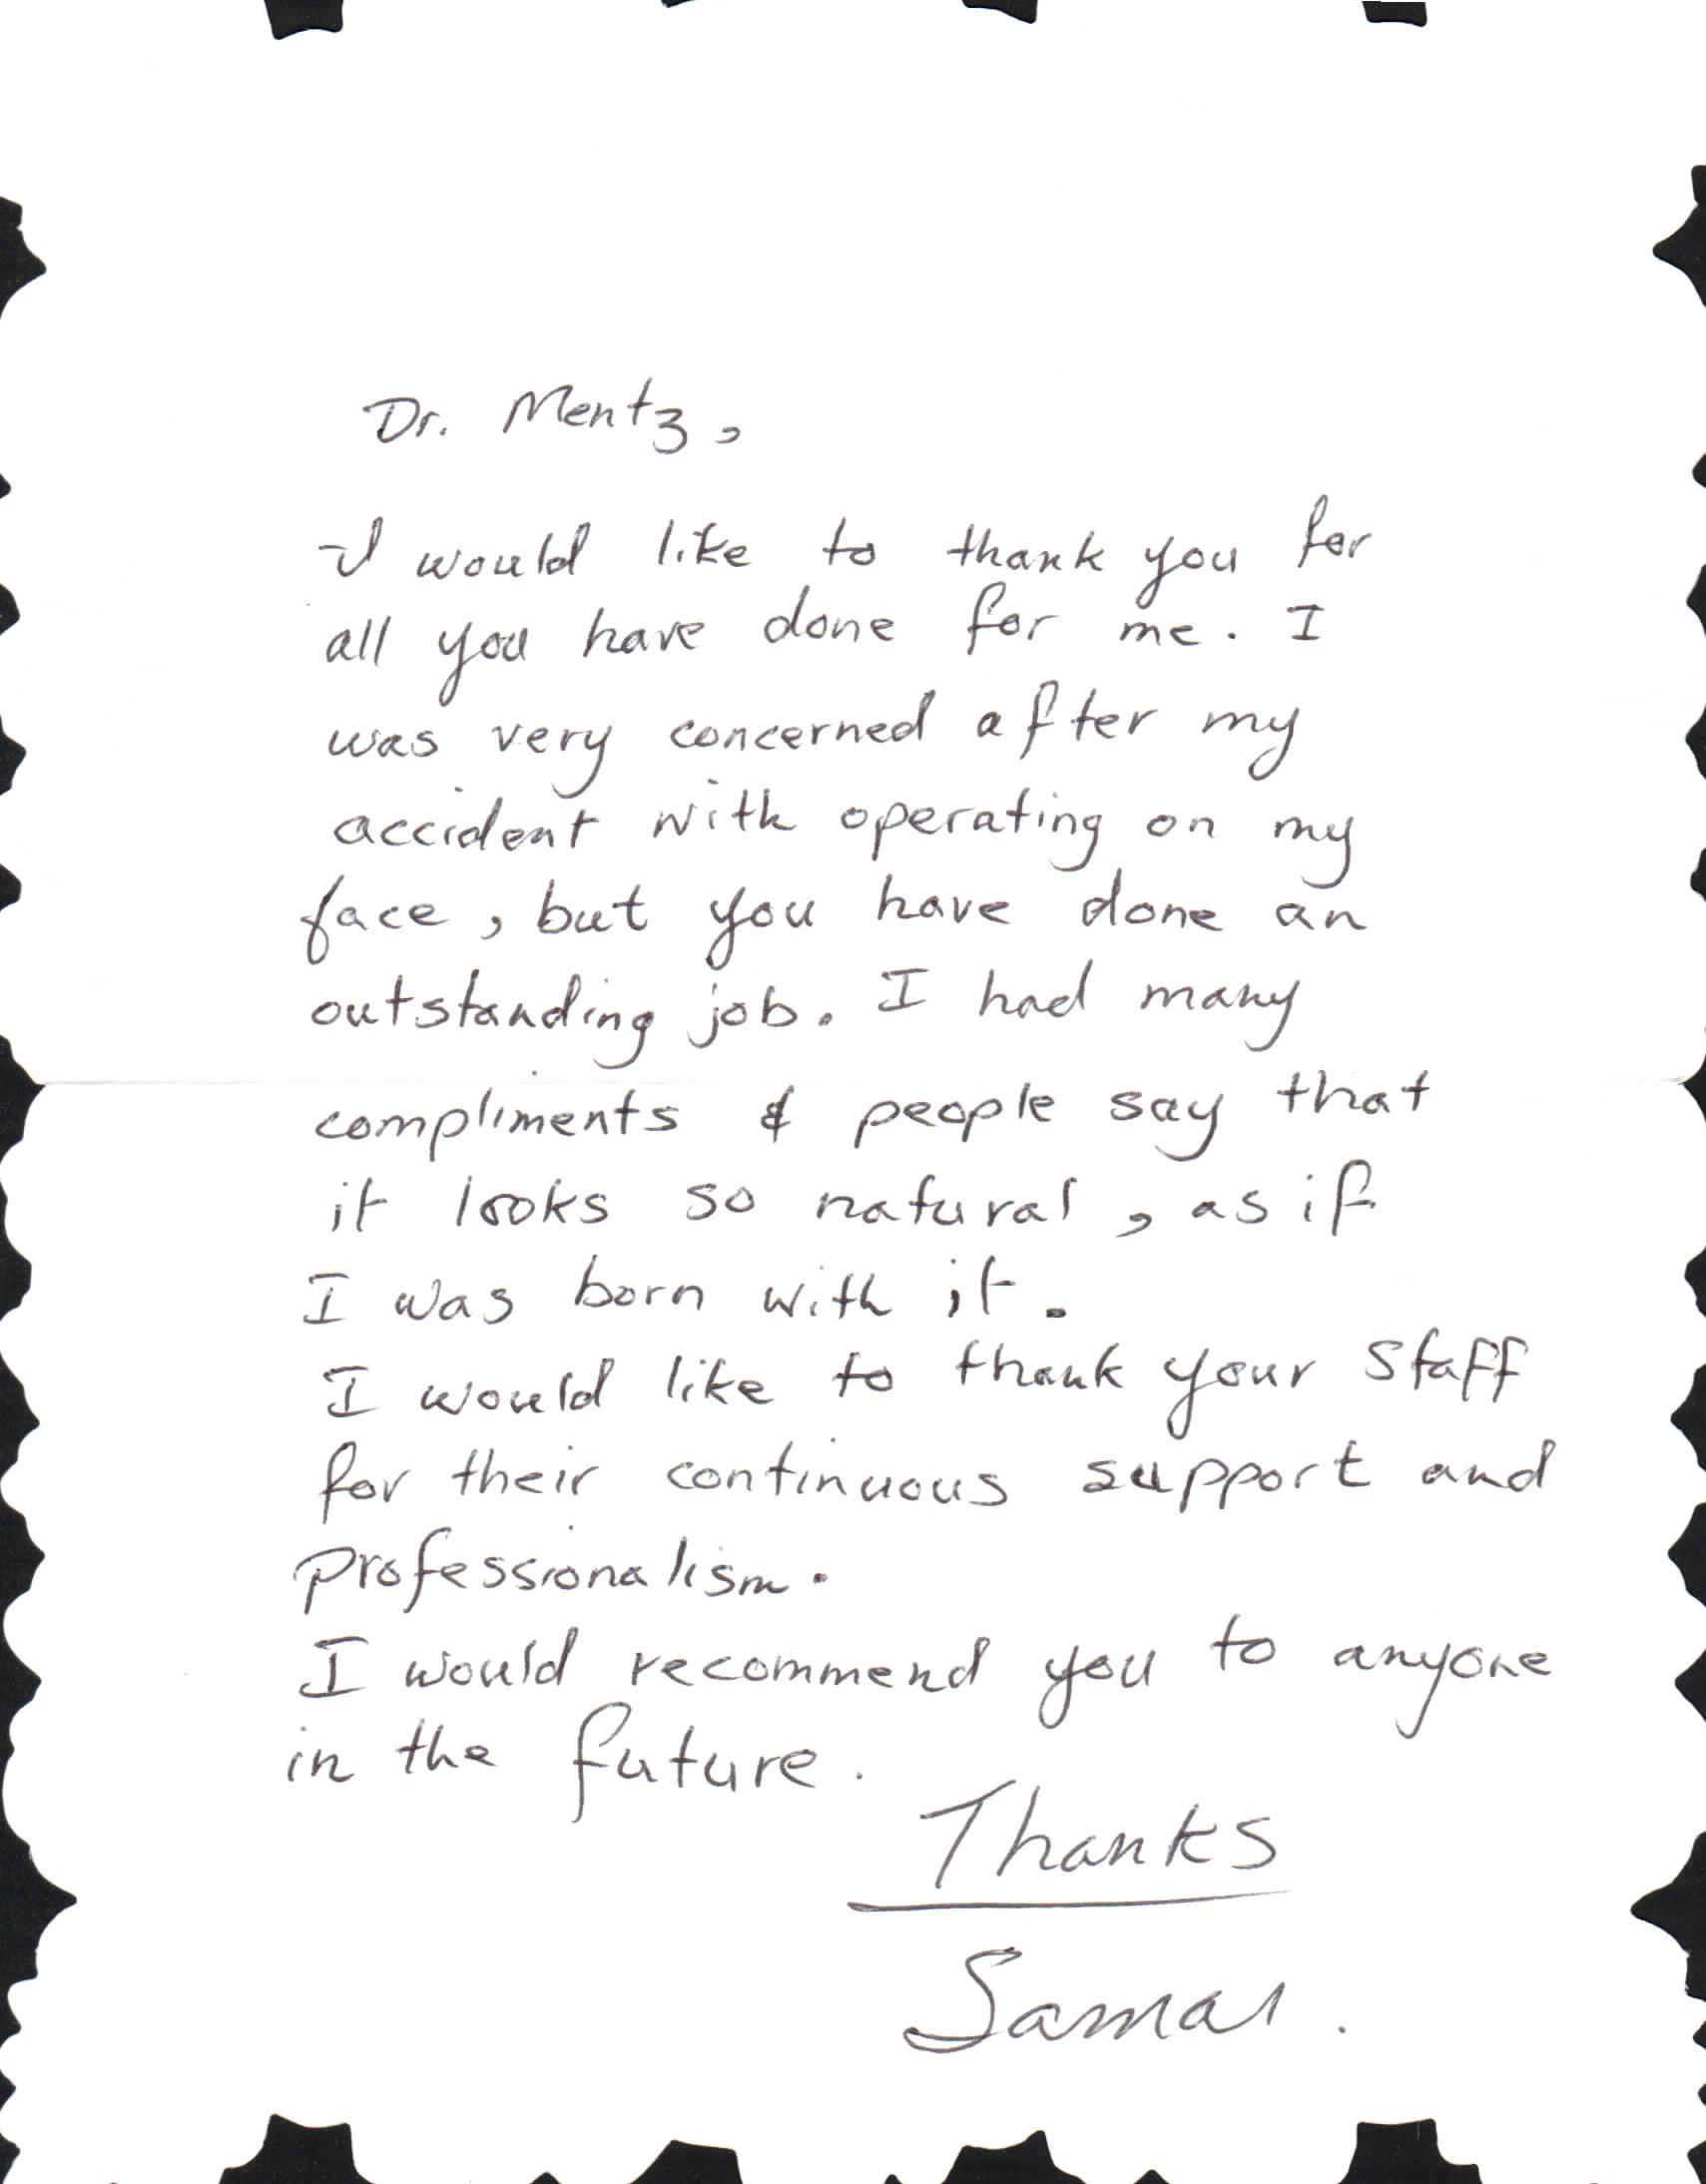 Dr. Mentz,
I would like to thank you for
all you have done for me. I
was very concerned after my
accident with operating on my
face, but you have done an
outstanding job. I had many
compliments & people say that
it looks so natural, as if
I was born with it.
I would like to thank your staff
for their continuous support and
professionalism.
I would recommend you to anyone
in the future.
Thanks
Samar.